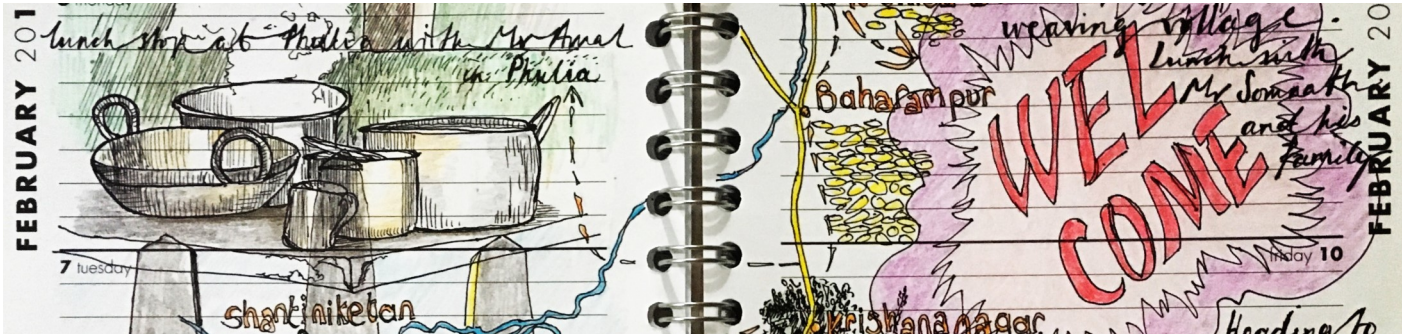 FEBRUARY 201
lunch stop at Phulia with Mr Amal
in Phulia
7 tuesday
shantiniketan
Baharampur
krishananagar
weaving village.
Lunch with
Mr Somnath
and his
family
WEL
COME
FEBRUARY 20
friday 10
Heading to